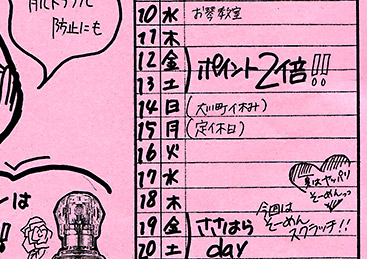 防止にも
10 水 お琴教室
11 木
12 金
13 土
ポイント2倍!!
14 日 (大川町イ木み)
15 月 (定イ木日)
16 火
17 水
夏はヤッパリ
そーめんっ
18 木
19 金
20 土
ささはら
day
今回は
そーめん
スクラッチ!!
は
!!